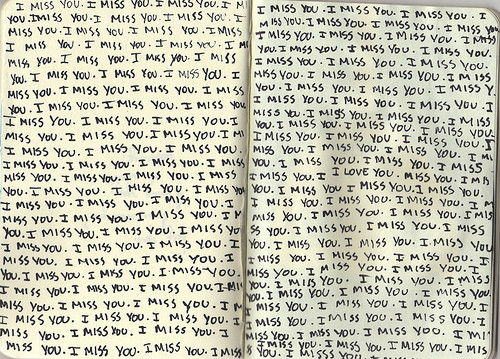 I MISS YOU. I MISS YOU. I MISS YOU. I
YOU. I MISS YOU. I MISS YOU. I MISS YOU. I
MISS YOU. I MISS YOU. I MISS YOU. I MISS
I MISS YOU. I MISS YOU. I MISS YOU. I M
YOU. I MISS YOU. I MISS YOU. I MISS
YOU. I MISS YOU. I MISS YOU. I MISS YOU. I
MISS YOU. I MISS YOU. I MISS YOU. I MISS
YOU. I MISS YOU. I MISS YOU. I MISS YOU
I MISS YOU. I MISS YOU. I MISS YOU. I MISS
MISS YOU. I MISS YOU. I MISS YOU. I M
I MISS YOU. I MISS YOU. I MISS YOU.
I MISS YOU. I MISS YOU. I MISS YOU. I MISS
MISS YOU. I MISS YOU. I MISS YOU. I MISS
YOU. I MISS YOU. I MISS YOU. I MISS YOU
MISS YOU. I MISS YOU. I MISS YOU. I
YOU. I MISS YOU. I MISS YOU. I MISS YOU. I
I MISS YOU. I MISS YOU. I MISS YOU. I
MISS YOU. I MISS YOU. I MISS YOU. I
YOU. I MISS YOU. I MISS YOU. I MISS YOU.
I MISS YOU. I MISS YOU. I MISS YOU. I MISS
MISS YOU. I MISS YOU. I MISS YOU. I M
I MISS YOU. I MISS YOU. I MISS YOU. I
MISS YOU. I MISS YOU. I MISS YOU. I
MISS YOU. I MISS YOU. I MISS YOU. I MISS
I MISS YOU. I MISS YOU. I MISS YOU. I
MISS YOU. I MISS YOU. I MISS YOU. I MISS YOU
MISS YOU. I MISS YOU. I MISS YOU. I MISS
YOU. I MISS YOU. I MISS YOU. I MISS YOU.
I MISS YOU. I MISS YOU. I MISS YOU.
MISS YOU. I MISS YOU. I MISS YOU. I MISS
YOU. I MISS YOU. I MISS YOU. I MISS Y
I MISS YOU. I MISS YOU. I MISS YOU. I
MISS YOU. I MISS YOU. I MISS YOU. I MISS
YOU. I MISS YOU. I MISS YOU. I MISS YOU
I MISS YOU. I MISS YOU. I MISS YOU. I
MISS YOU. I MISS YOU. I MISS YOU. I M
YOU. I MISS YOU. I MISS YOU. I MISS
YOU. I MISS YOU. I LOVE YOU. MISS YOU. I MISS
YOU. I MISS YOU. I MISS YOU. I MISS YOU.
I MISS YOU. I MISS YOU. I MISS YOU. I MISS
MISS YOU. I MISS YOU. I MISS YOU. I
YOU. I MISS YOU. I MISS YOU. I MISS
I MISS YOU. I MISS YOU. I MISS YOU
YOU. I MISS YOU. I MISS YOU. I MISS
MISS YOU. I MISS YOU. I MISS YOU. I MISS
I MISS YOU. I MISS YOU. I MISS YOU.
MISS YOU. I MISS YOU. I MISS YOU. I MISS YOU
MISS YOU. I MISS YOU. I MISS YOU. I
MISS YOU. I MISS YOU. I MISS YOU. I MISS
YOU. I MISS YOU. I MISS YOU. I MISS YOU. I
MISS YOU. I MISS YOU. I MISS YOU. I MISS
YOU. I MISS YOU. I MISS YOU. I MISS YOU